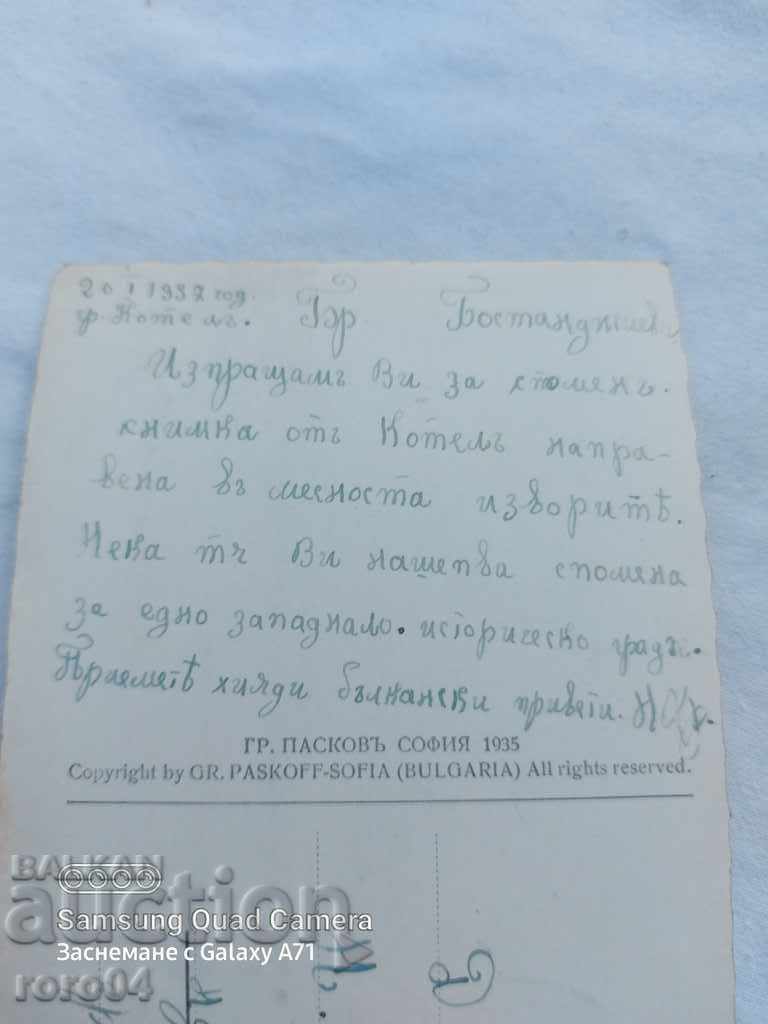 20 I 1937 год.
гр. Котелъ. Бр Бостанджиев
Изпращамъ Ви за споменъ.
снимка отъ Котелъ напра-
вена въ месноста изворитѣ.
Нека тя Ви нашепва спомена
за едно западнало. историческо градъ.
Приемѣтѣ хиляди балкански привети.
ГР. ПАСКОВЪ СОФИЯ 1935
Copyright by GR. PASKOFF-SOFIA (BULGARIA) All rights reserved.
BALKAN
auction
Samsung Quad Camera
Заснемане с Galaxy A71
roro04